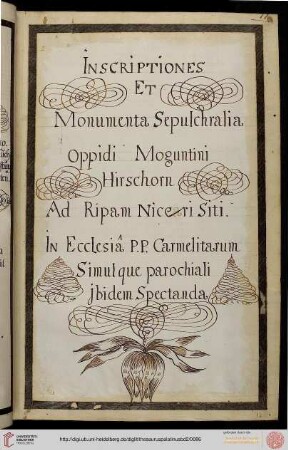 Inscriptiones
Et
Monumenta Sepulchralia
Oppidi Moguntini
Hirschorn
Ad Ripam Niccari Siti.
In Ecclesiâ P.P. Carmelitarum
Simulque parochiali
jbidem Spectanda.
UNIVERSITÄTS-
BIBLIOTHEK
HEIDELBERG
http://digi.ub.uni-heidelberg.de/diglit/thesauruspalatinusbd2/0086